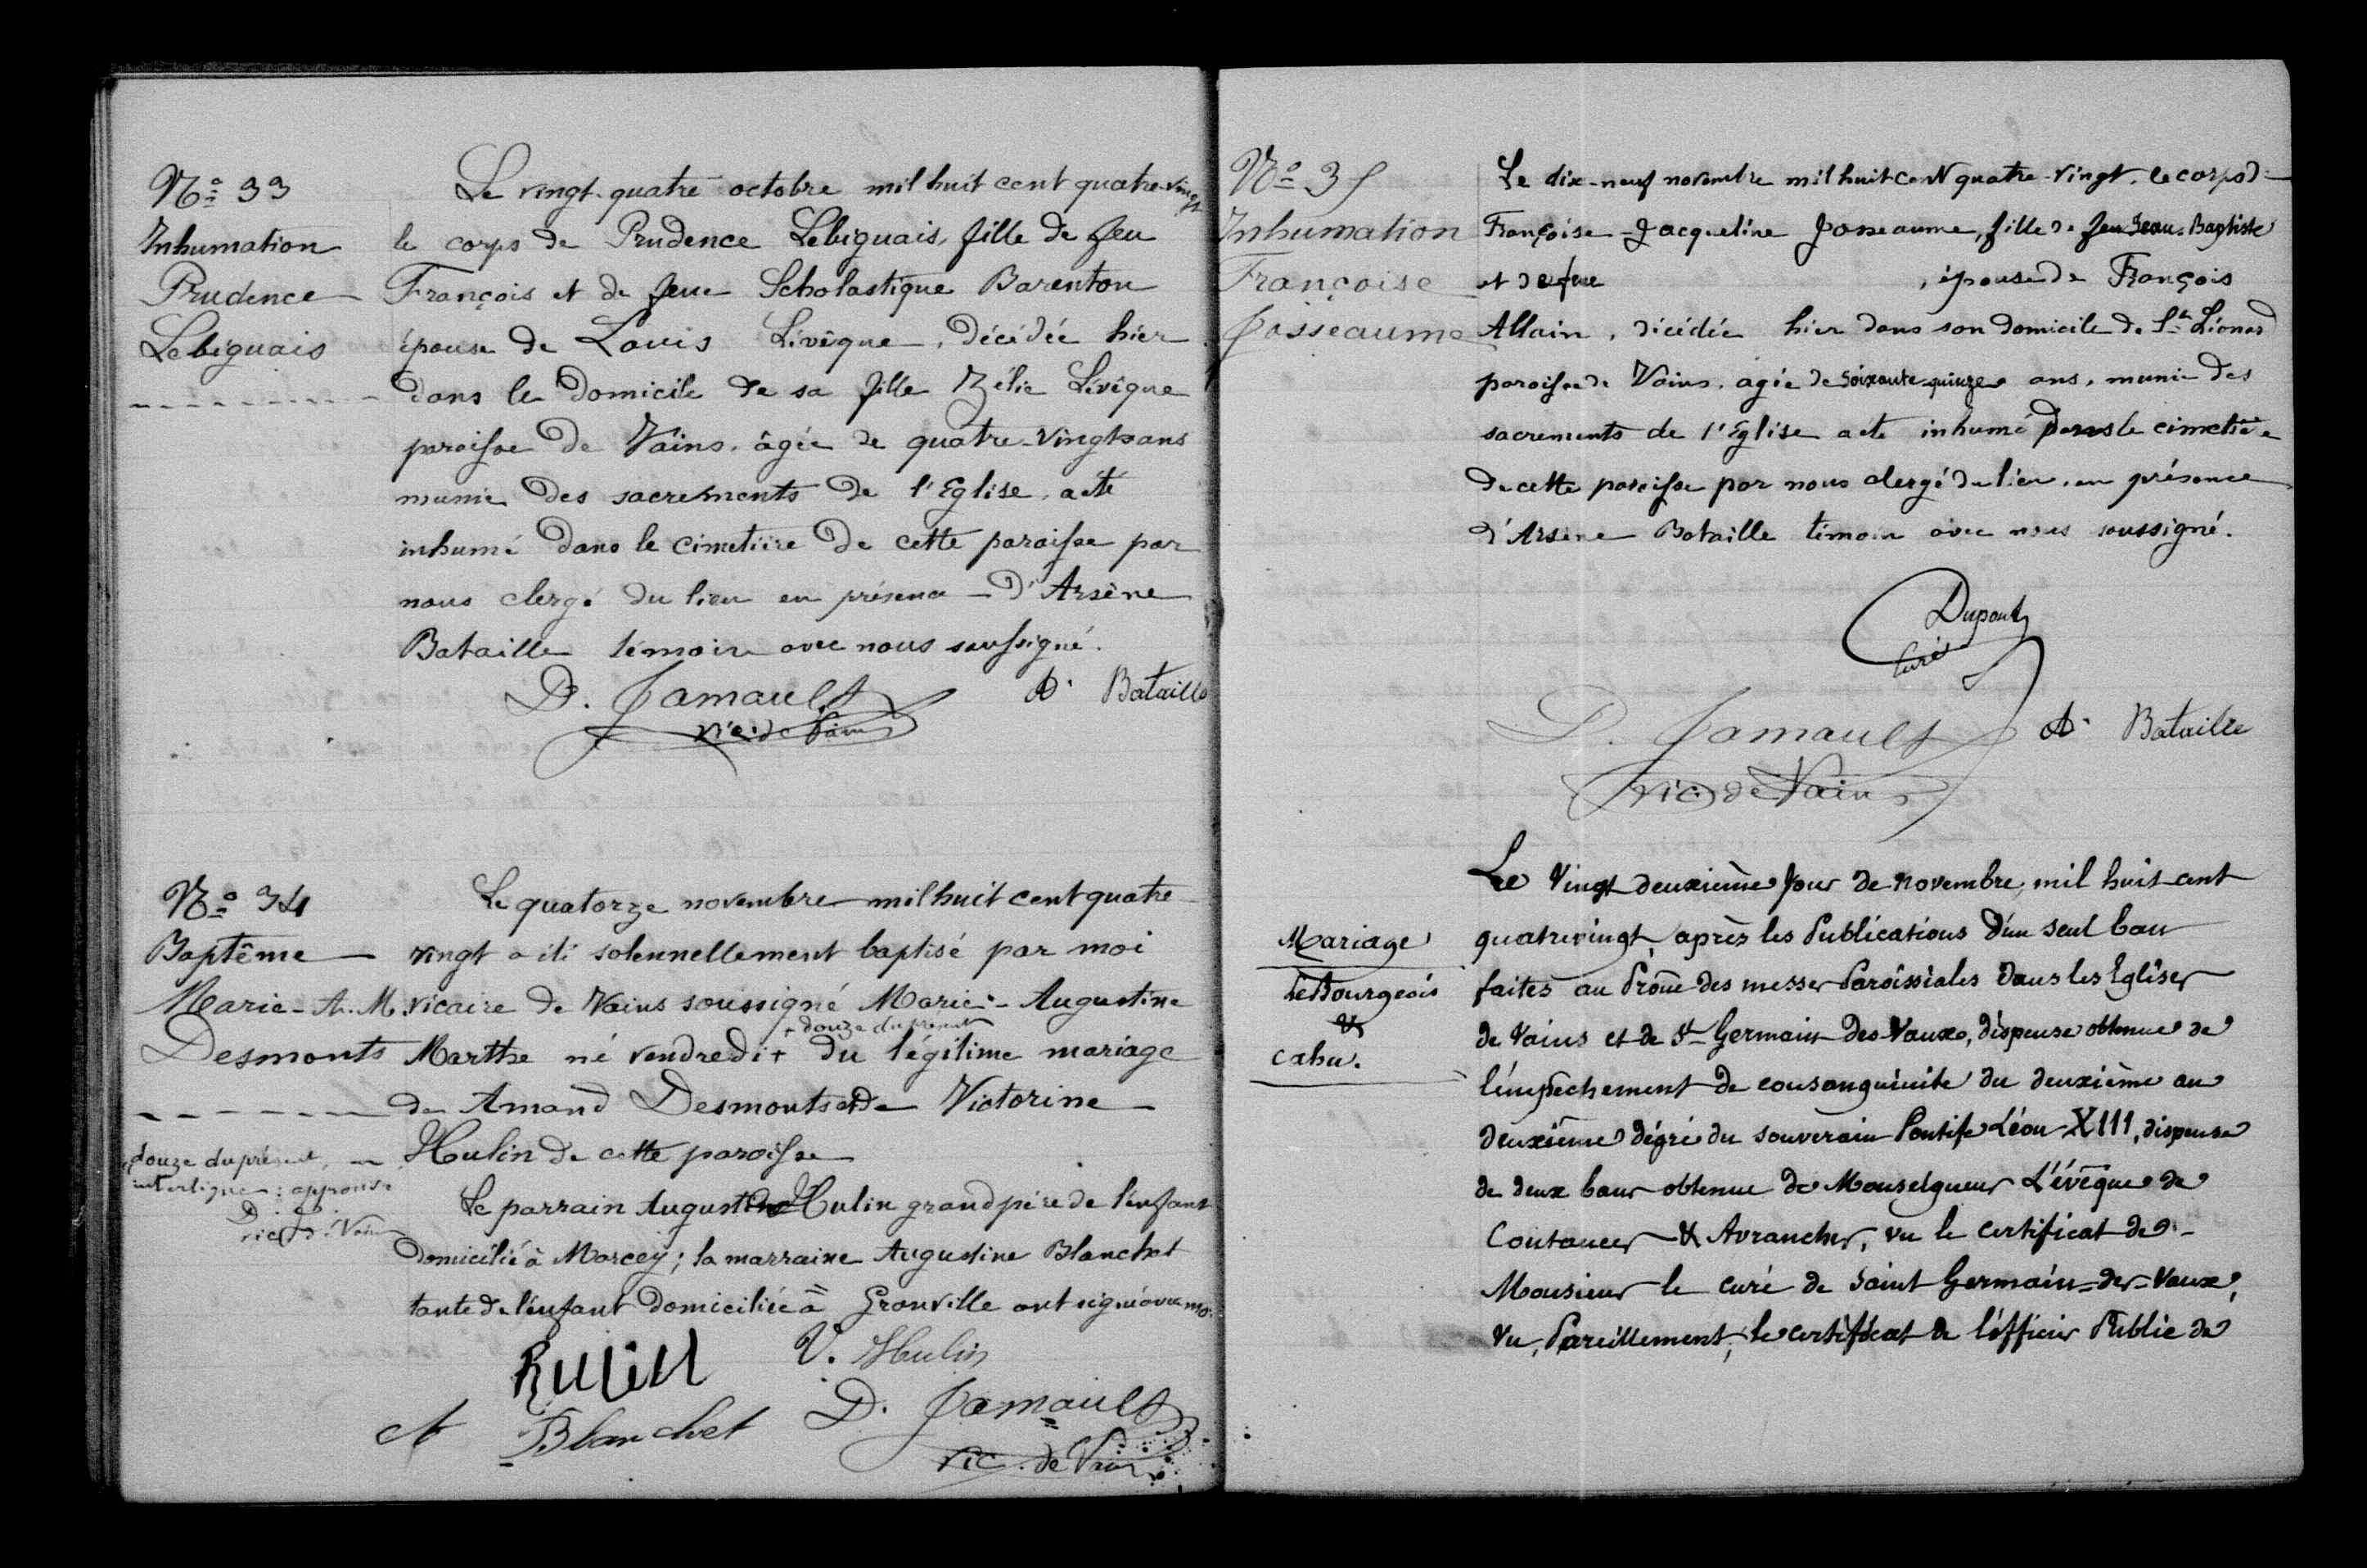 Nº 33
Inhumation
Prudence
Lebiguais
Le vingt-quatre octobre mil huit cent quatre-vingt
le corps de Prudence Lebiguais, fille de feu
François et de feue Scholastique Barenton
épouse de Louis Livêque, décédée hier
dans le domicile de sa fille Zélie Livêque
paroisse de Vains, âgée de quatre-vingts ans
munie des sacrements de l'Eglise, a été
inhumé dans le cimetière de cette paroisse par
nous clergé du lieu en présence d'Arsène
Bataille témoin avec nous soussigné.
D. Jamault A. Bataille
vic. de Vains
Nº 34
Baptême
Marie-A. M.
Desmonts
douze du présent,
interligne : approuvé
D. J.
vic. d. Vains
Le quatorze novembre mil huit cent quatre
vingt a été solennellement baptisé par moi
vicaire de Vains soussigné Marie-Augustine
+ douze du présent
Marthe né vendredi + du légitime mariage
de Amand Desmonts et de Victorine
Hulin de cette paroisse
Le parrain Augustin Hulin grand père de l'enfant
domicilié à Marcey; la marraine Augustine Blanchet
tante de l'enfant domiciliée à Granville ont signé avec moi.
V. Hulin
A Blanchet D. Jamault
vic. de Vains
Nº 35
Inhumation
Françoise
Josseaume
Le dix-neuf novembre mil huit cent quatre-vingt, le corps d
Françoise-Jacqueline Josseaume, fille de feu Jean-Baptiste
et de feue , épouse de François
Allain, décédée hier dans son domicile de St Léonard
paroisse de Vains, agée de soixante-quinze ans, munie des
sacrements de l'Eglise a été inhumé dans le cimetière
de cette paroisse par nous clergé du lieu, en présence
d'Arsène Bataille témoin avec nous soussigné.
Dupont
Curé
D. Jamault A. Bataille
vic. de Vains
Mariage
LeBourgeois
&
Cahu.
Le vingt deuxième jour de novembre, mil huit cent
quatrevingt, après les Publications d'un seul ban
faites au Prône des messes Paroissiales dans les Eglises
de Vains et de St Germain des Vaux, dispense obtenue de
l'émpêchement de consanguinité du deuxième au
deuxième dégré du souverain Pontife Léon XIII, dispense
de deux bans obtenue de Monseigneur L'évêque de
Coutances & Avranches, vu le certificat de
Monsieur le curé de Saint Germain-des-Vaux,
vu, Pareillement, le certificat de l'officier Public de